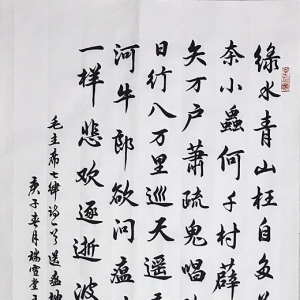 綠水青山枉自多
奈小蟲何千村薜
矢万户蕭疏鬼唱
日行八万里巡天遥
河牛郎欲问瘟
一样悲欢逐逝波
毛主席七律詩一首送瘟神
庚子春月瑞雪堂